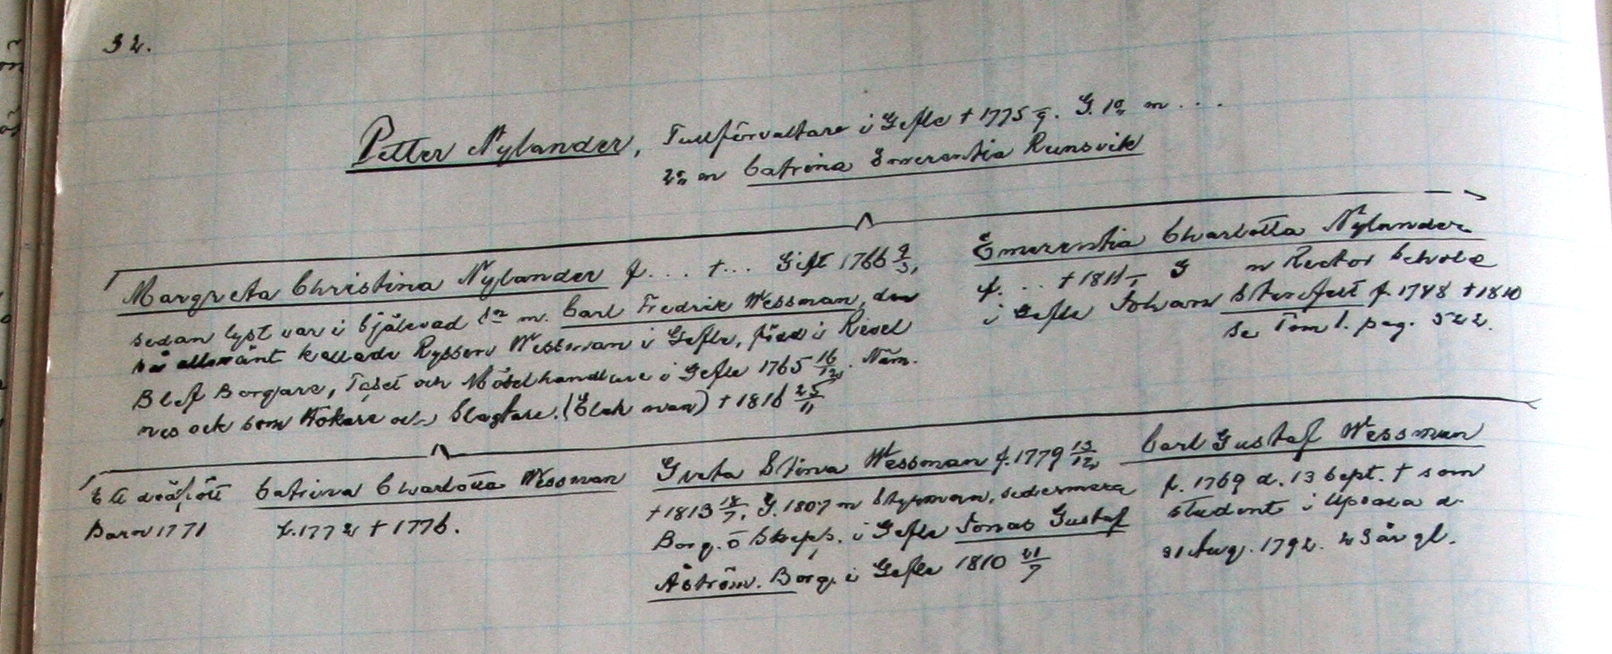 32.
Petter Nylander, Tullförvaltare i Gefle † 1775 G. 1o m ...
2o m Catrina Emerentia Runsvik
Margreta Christina Nylander f... †... Gift 1766 9/3,
sedan lyst var i Själevad m. Carl Fredrik Wessman, den
så allmänt kallade Ryssen Wessman i Gefle, född i Revel
Blef Borgare, och Möbelhandlare i Gefle 1765 16/12. Näm.
nes ock som Kokare och Slagtare. († 1816 25/11
Emerentia Charlotta Nylander
f. ... † 1811, G m Rector Scholæ
i Gefle Johan f. 1748 † 1810
Se Tom 1. pag. 522.
Ett dödfött
Barn 1771
Catrina Charlotta Wessman
f. 1772 † 1776.
Greta Stina Wessman f. 1779 13/12
† 1813 18/7, G. 1807 m Styrman, sedermera
Borg. o Skepps. i Gefle Jonas Gustaf
Åström. Borg. i Gefle 1810 21/7
Carl Gustaf Wessman
f. 1769 d. 13 Sept. † som
student i Upsala d.
31 Aug. 1792. 23 år gl.